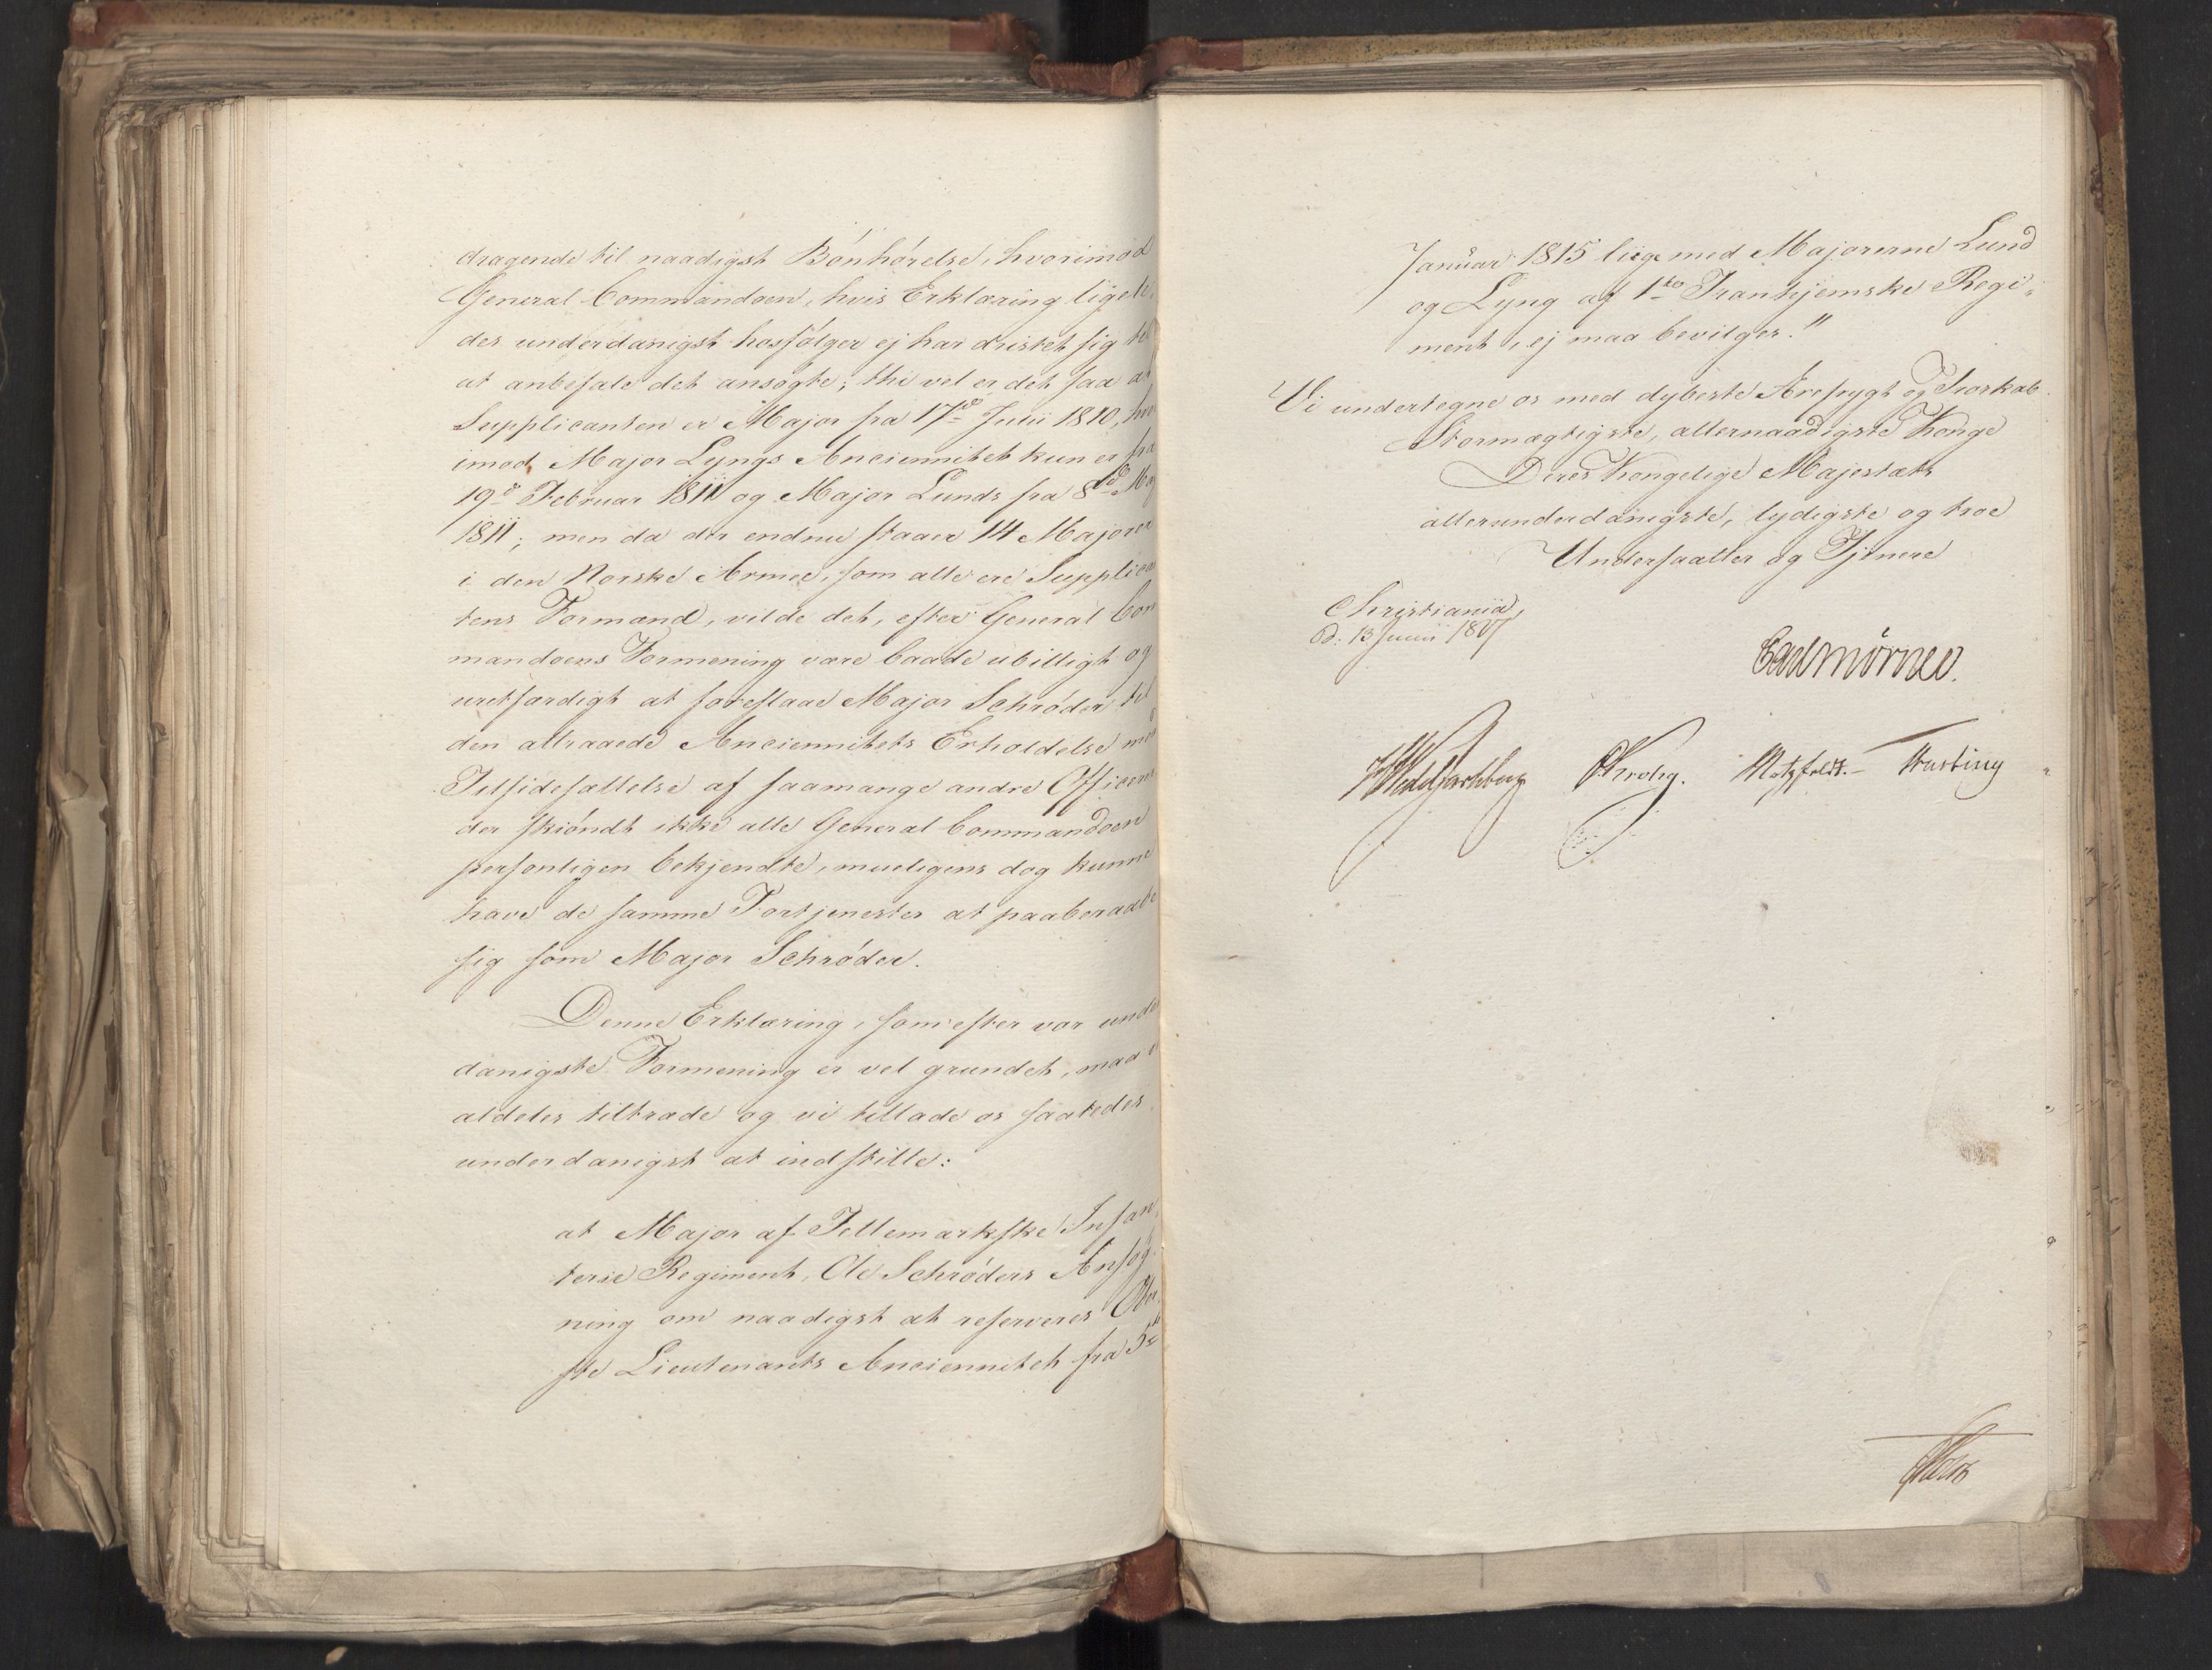 dragende til naadigst Bönhörelse, hvorimod
General Commandoen, hvis Erklæring ligele,
des underdanigst hosfølger ej har dristet sig til
at anbefale det ansøgte; thi vel er det saa at
Supplicanten er Major fra 17de Junii 1810, hvo
imod Major Lyngs Anciennitet kun er fra
19de Februar 1811 og Major Lunds fra 8de
1811; men da der endnu staaer 14 Majorer
i den Norske Armee, som alle ere Supplican
tens Formænd, vilde det, efter General Com
mandoens Formening være baade ubilligt og
uretfærdigt at foreslaae Major Schrøder til
den attraaede Anciennitets Erholdelse med
Tilsidesættelse af saamange andre Officerer
der skiöndt ikke alle General Commandoen
personligen bekjendte, mueligens dog kunne
have de samme Fortjenester at paaberaabe
sig som Major Schrøder.
Denne Erklæring, som efter vor unde
danigste Formening er vel grundet, maa vi
aldeles tiltræde og vi tillade os saaledes
underdanigst at indstille:
at Major af Tellemarkske Infan,
terie Regiment, Ole Schrøders Ansøg-
ning om naadigst at reserveres Ober,
ste Lieutenants Anciennitet fra 5te
Januar 1815 liige med Majorerne Lund
og Lyng af 1ste Tronhjemske Regi,
ment, ej maa bevilges."
Vi undertegne os med dybeste Ærefrygt og Troskab
Stormægtigste, allernaadigste Konge
Deres Kongelige Majestæts
allerunderdanigste, lydigste og troe
Undersaatter og Tjenere
Christiania,
d: 13 Junii 1817
Carl Mörner.
HWedel Jarlsberg Krohg. Motzfeldt.- Fasting